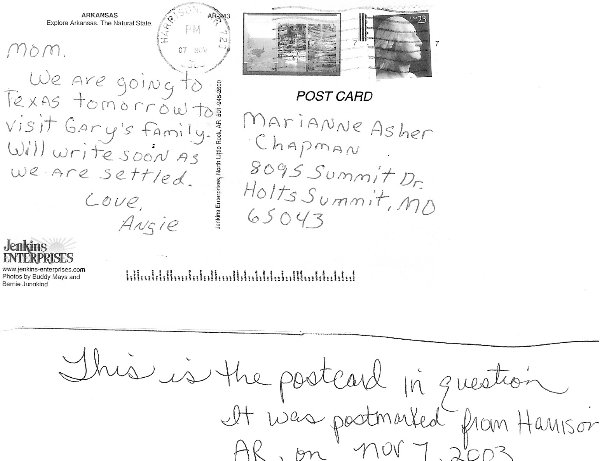 ARKANSAS
Explore Arkansas. The Natural State.
Mom.
We are going to
Texas tomorrow to
visit Gary's family.
Will write soon as
we are settled.
Love,
Angie
Jenkins
ENTERPRISES
www.jenkins-enterprises.com
Photos by Buddy Mays and
PM
POST CARD
Marianne Asher
Chapman
8095 Summit Dr.
Holts Summit, MO
65043
This is the postcard in question
It was postmarked from Harrison
AR, on Nov 7, 2003